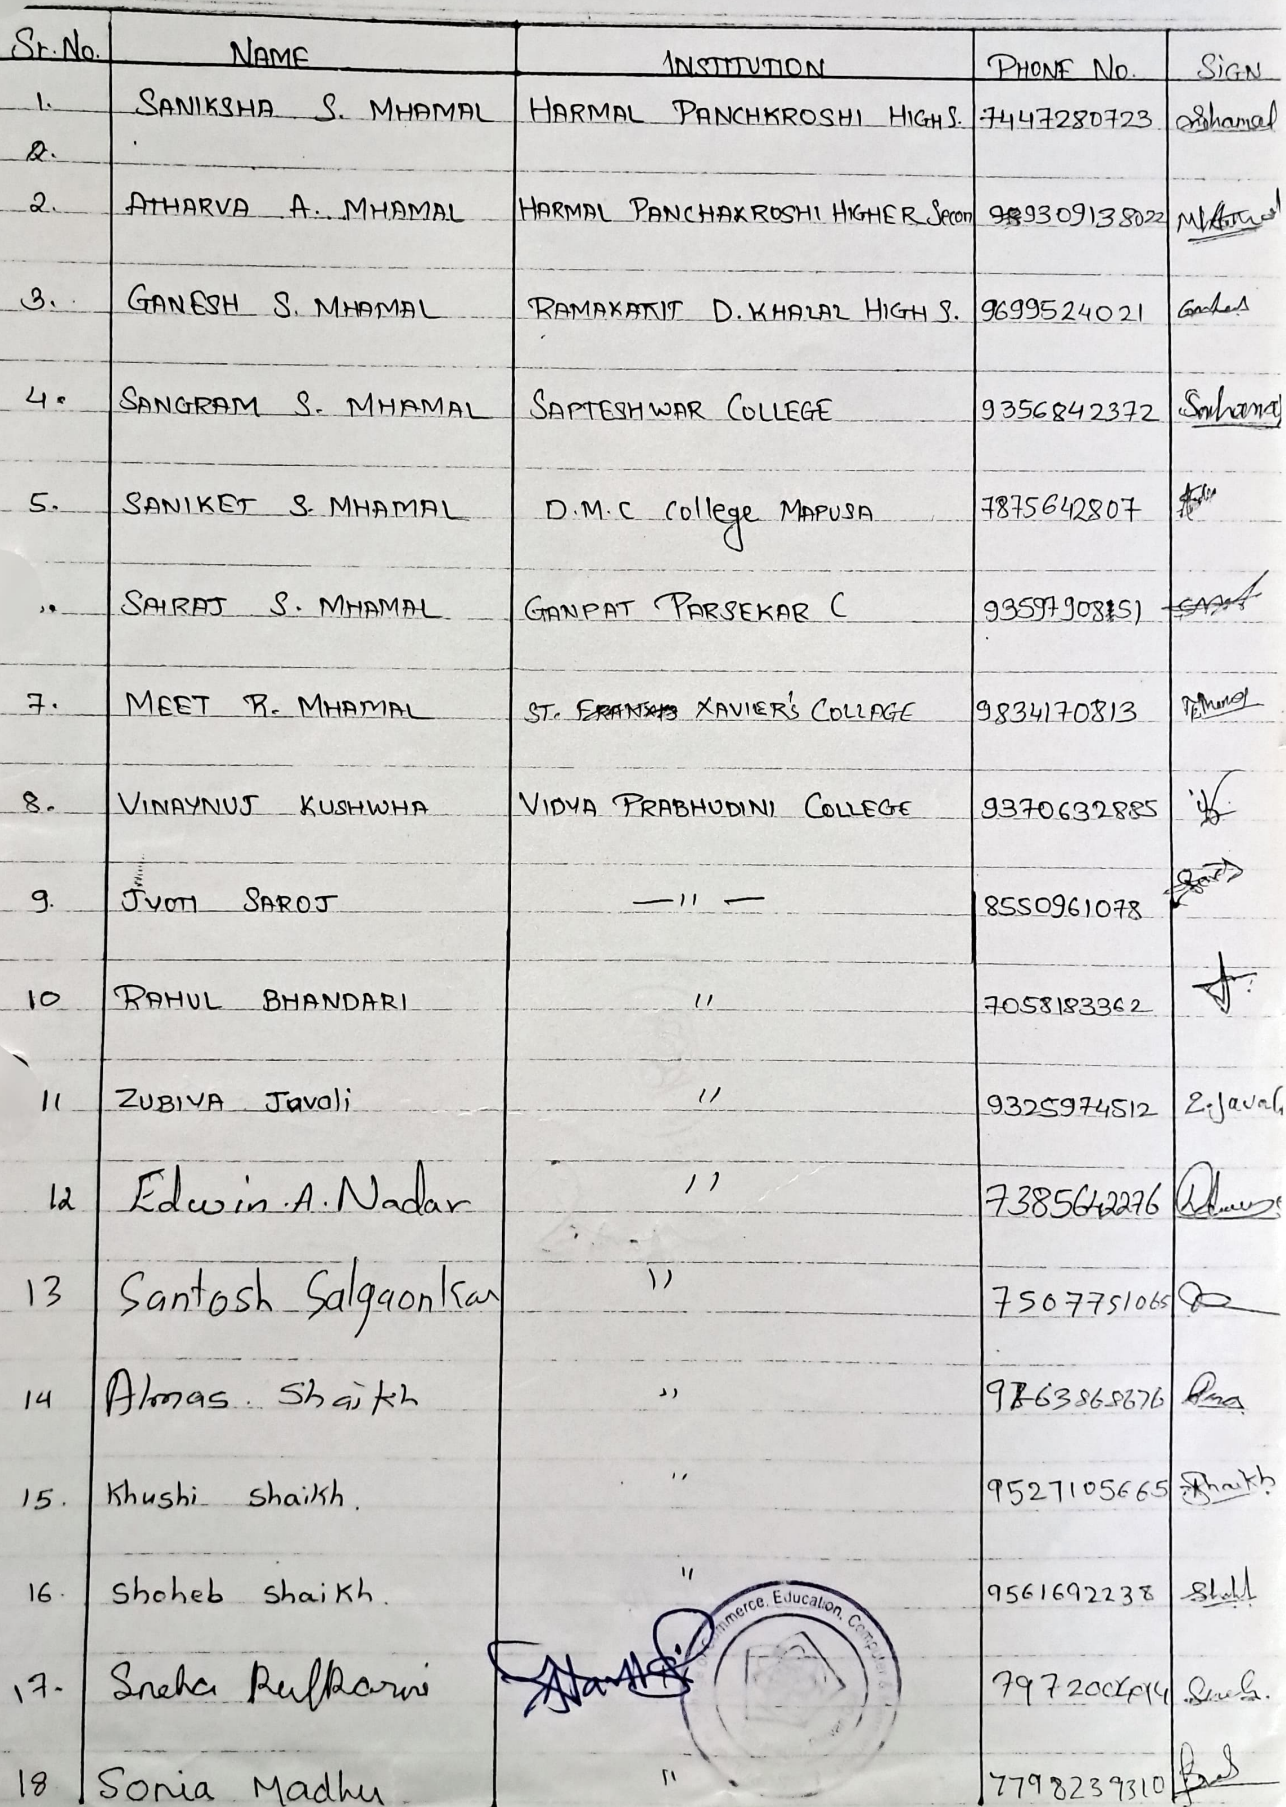 Sr. No. NAME INSTITUTION PHONE No. SIGN
1. SANIKSHA S. MHAMAL HARMAL PANCHKROSHI HIGH S. 7447280723
2.
2. ATHARVA A. MHAMAL HARMAL PANCHAKROSHI HIGHER Secon 9309138022
3. GANESH S. MHAMAL D. KHALAL HIGH S. 9699524021
4. SANGRAM S. MHAMAL SAPTESHWAR COLLEGE 9356842372
5. SANIKET S. MHAMAL D.M.C College MAPUSA 7875642807
SAIRAJ S. MHAMAL GANPAT PARSEKAR C
7. MEET R. MHAMAL ST. XAVIER'S COLLAGE 9834170813
8. VINAYNUJ KUSHWHA VIDYA PRABHUDINI COLLEGE 9370632885
9. JYOTI SAROJ — 11 — 8550961078
10 RAHUL BHANDARI 11 7058183362
11 ZUBIYA Javali 11 9325974512 Z.Javali
12 Edwin.A.Nadar 11 7385642276
13 Santosh Salgaonkar 11 7507751065
14 Almas. Shaikh 11
15. Khushi Shaikh. 11 9527105665 Shaikh
16. Shoheb Shaikh. 11 9561692238
17. Sneha
mmerce, Education, Computer &
18 Sonia Madhu 11 7798239310